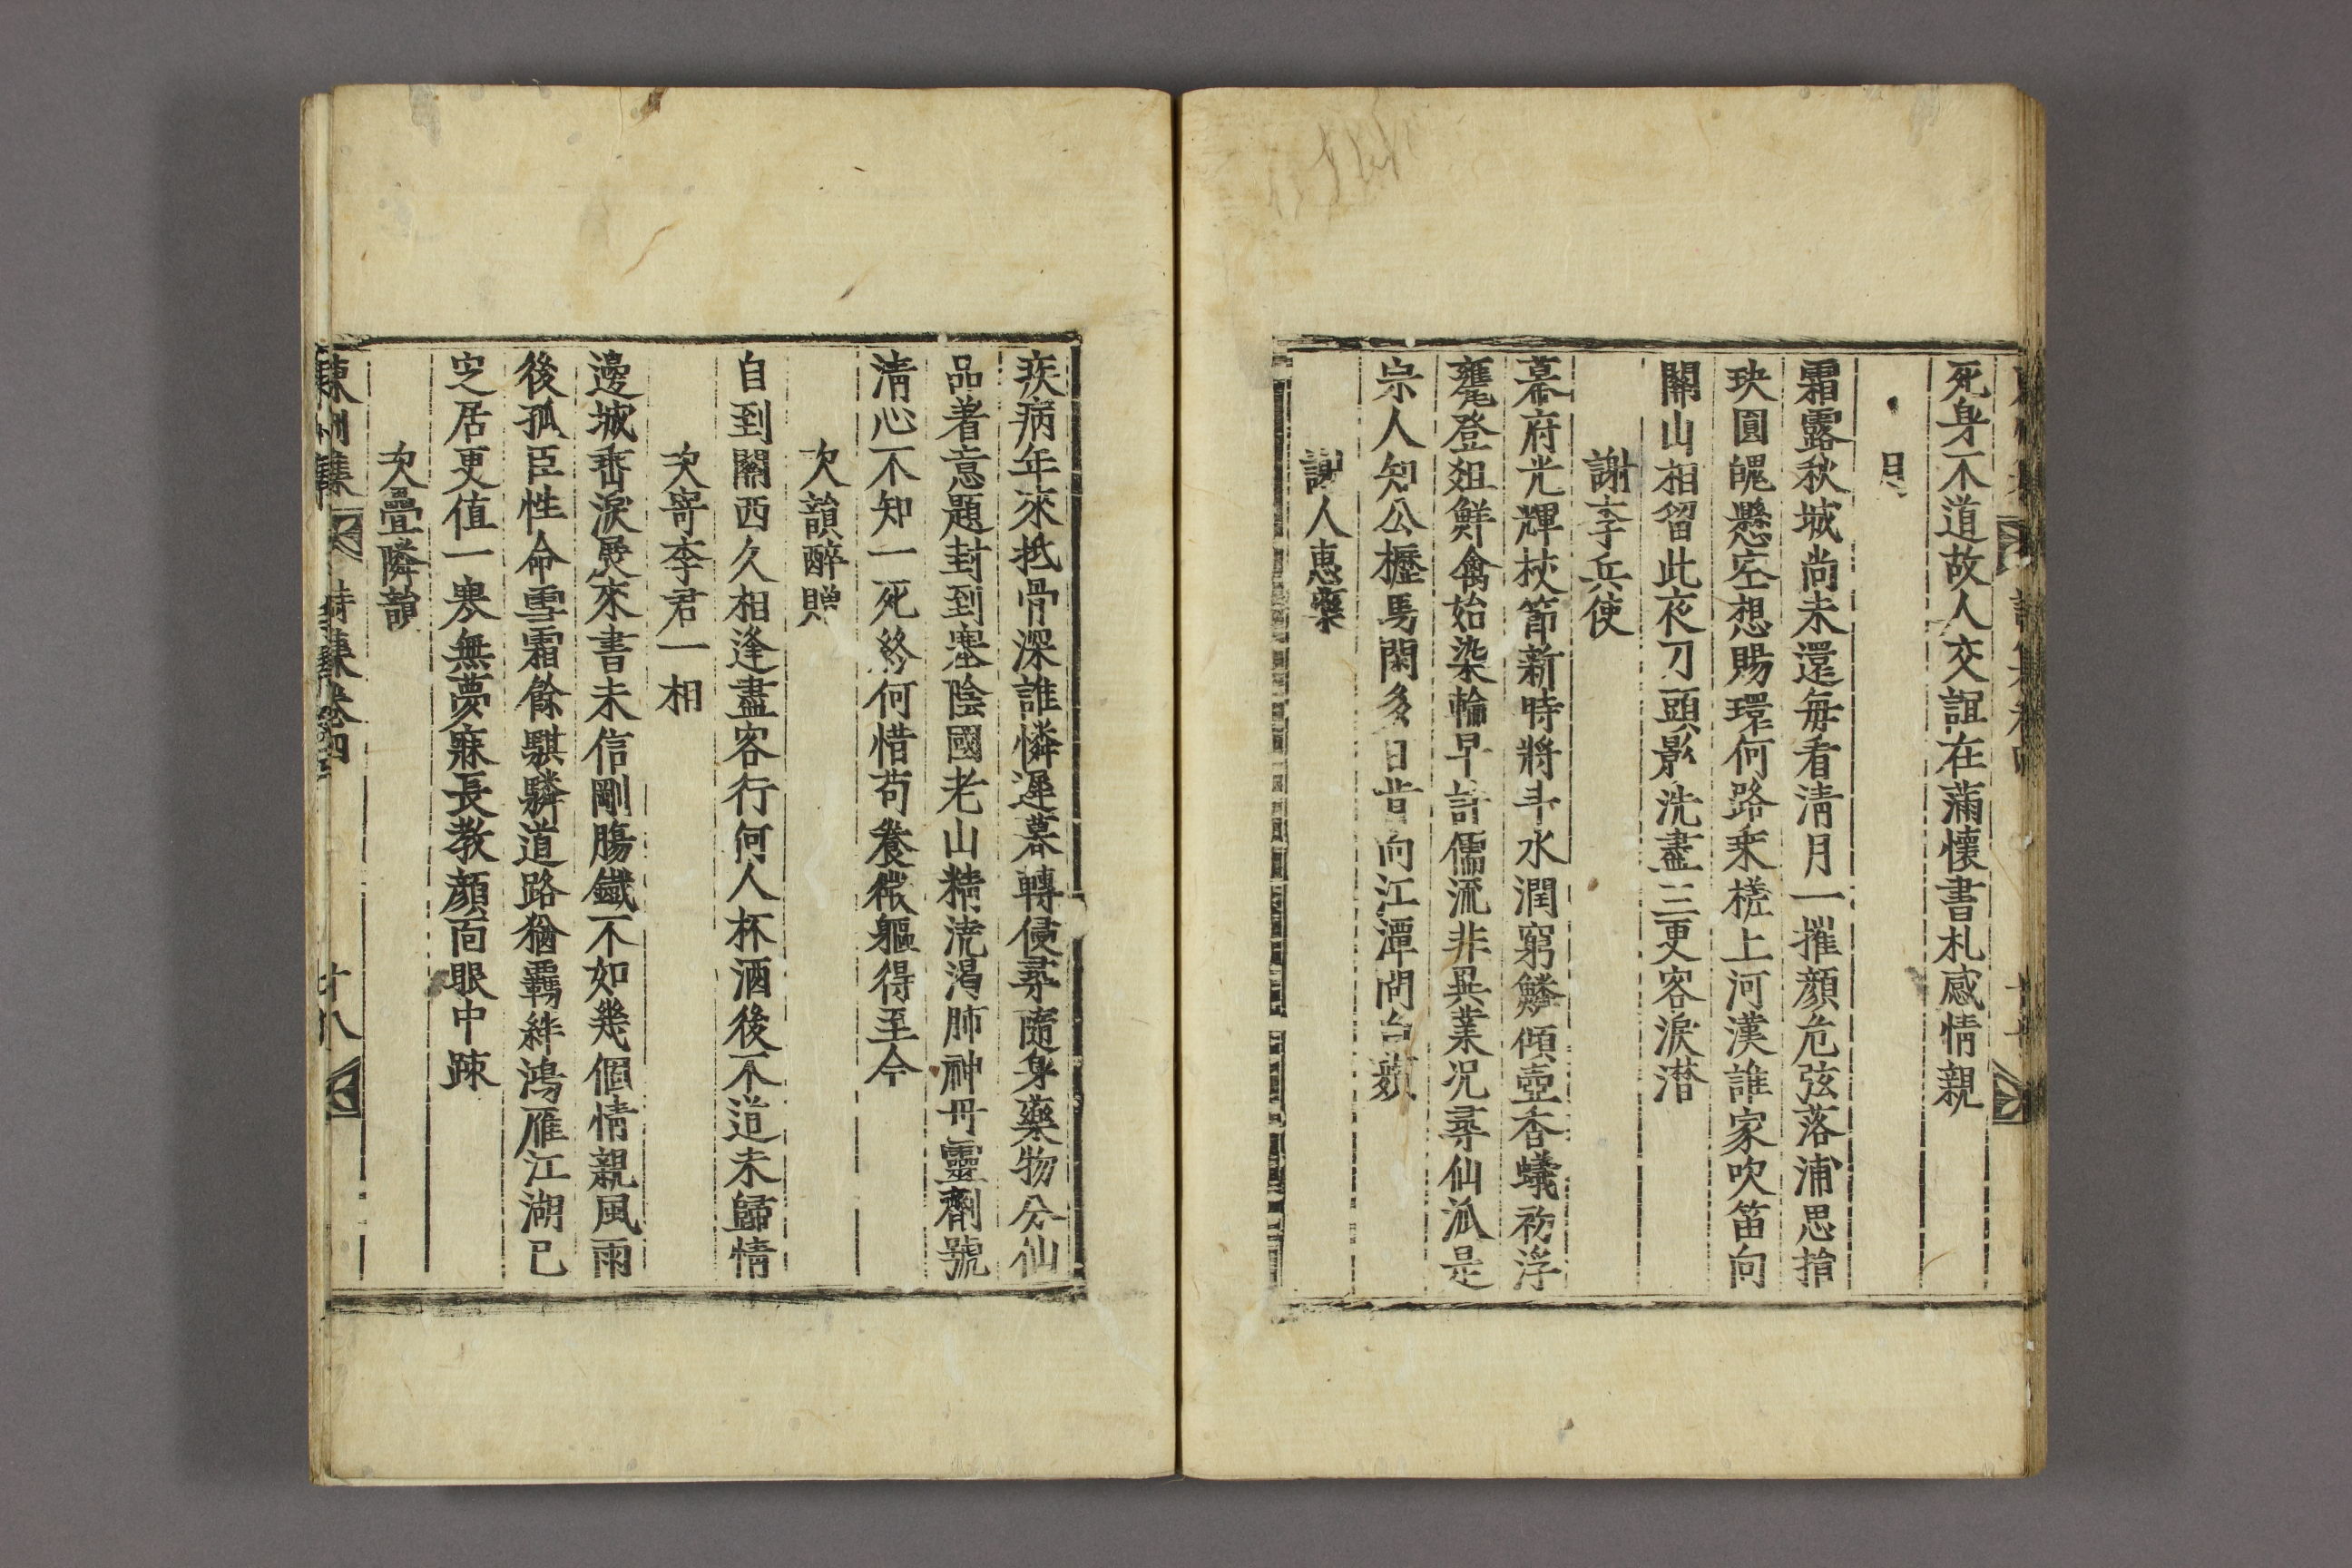 死身不道故人交誼在滿懷書札感情親
月
霜露秋城尚未還每看淸月一摧顔危弦落浦思捐
玦圓魄懸空想賜環何路乘槎上河漢誰家吹笛向
關山相留此夜刀頭影洗盡三更客淚潜
謝李兵使
幕府光輝杖節新時將斗水潤窮鱗傾壺香蟻初浮
甕登俎鮮禽始染輪早許儒流非異業况尋仙派是
宗人知公櫪馬閑多日肯向江潭問白蘋
謝人惠藥
疾病年來抵骨深誰憐遲暮轉侵尋隨身藥物分仙
品着意題封到塞陰國老山精澆渴肺神丹靈劑號
淸心不知一死終何惜苟養微軀得至今
次韻醉贈
自到關西久相逢盡客行何人杯酒後不道未歸情
次寄李君一相
邊城垂淚廢來書未信剛膓鐵不如幾個情親風雨
後孤臣性命雪霜餘騏驎道路猶覊絆鴻雁江湖已
定居更值一衾無夢寐長教顔面眼中踈
次疊隣韻
東州集 詩集卷四 十八